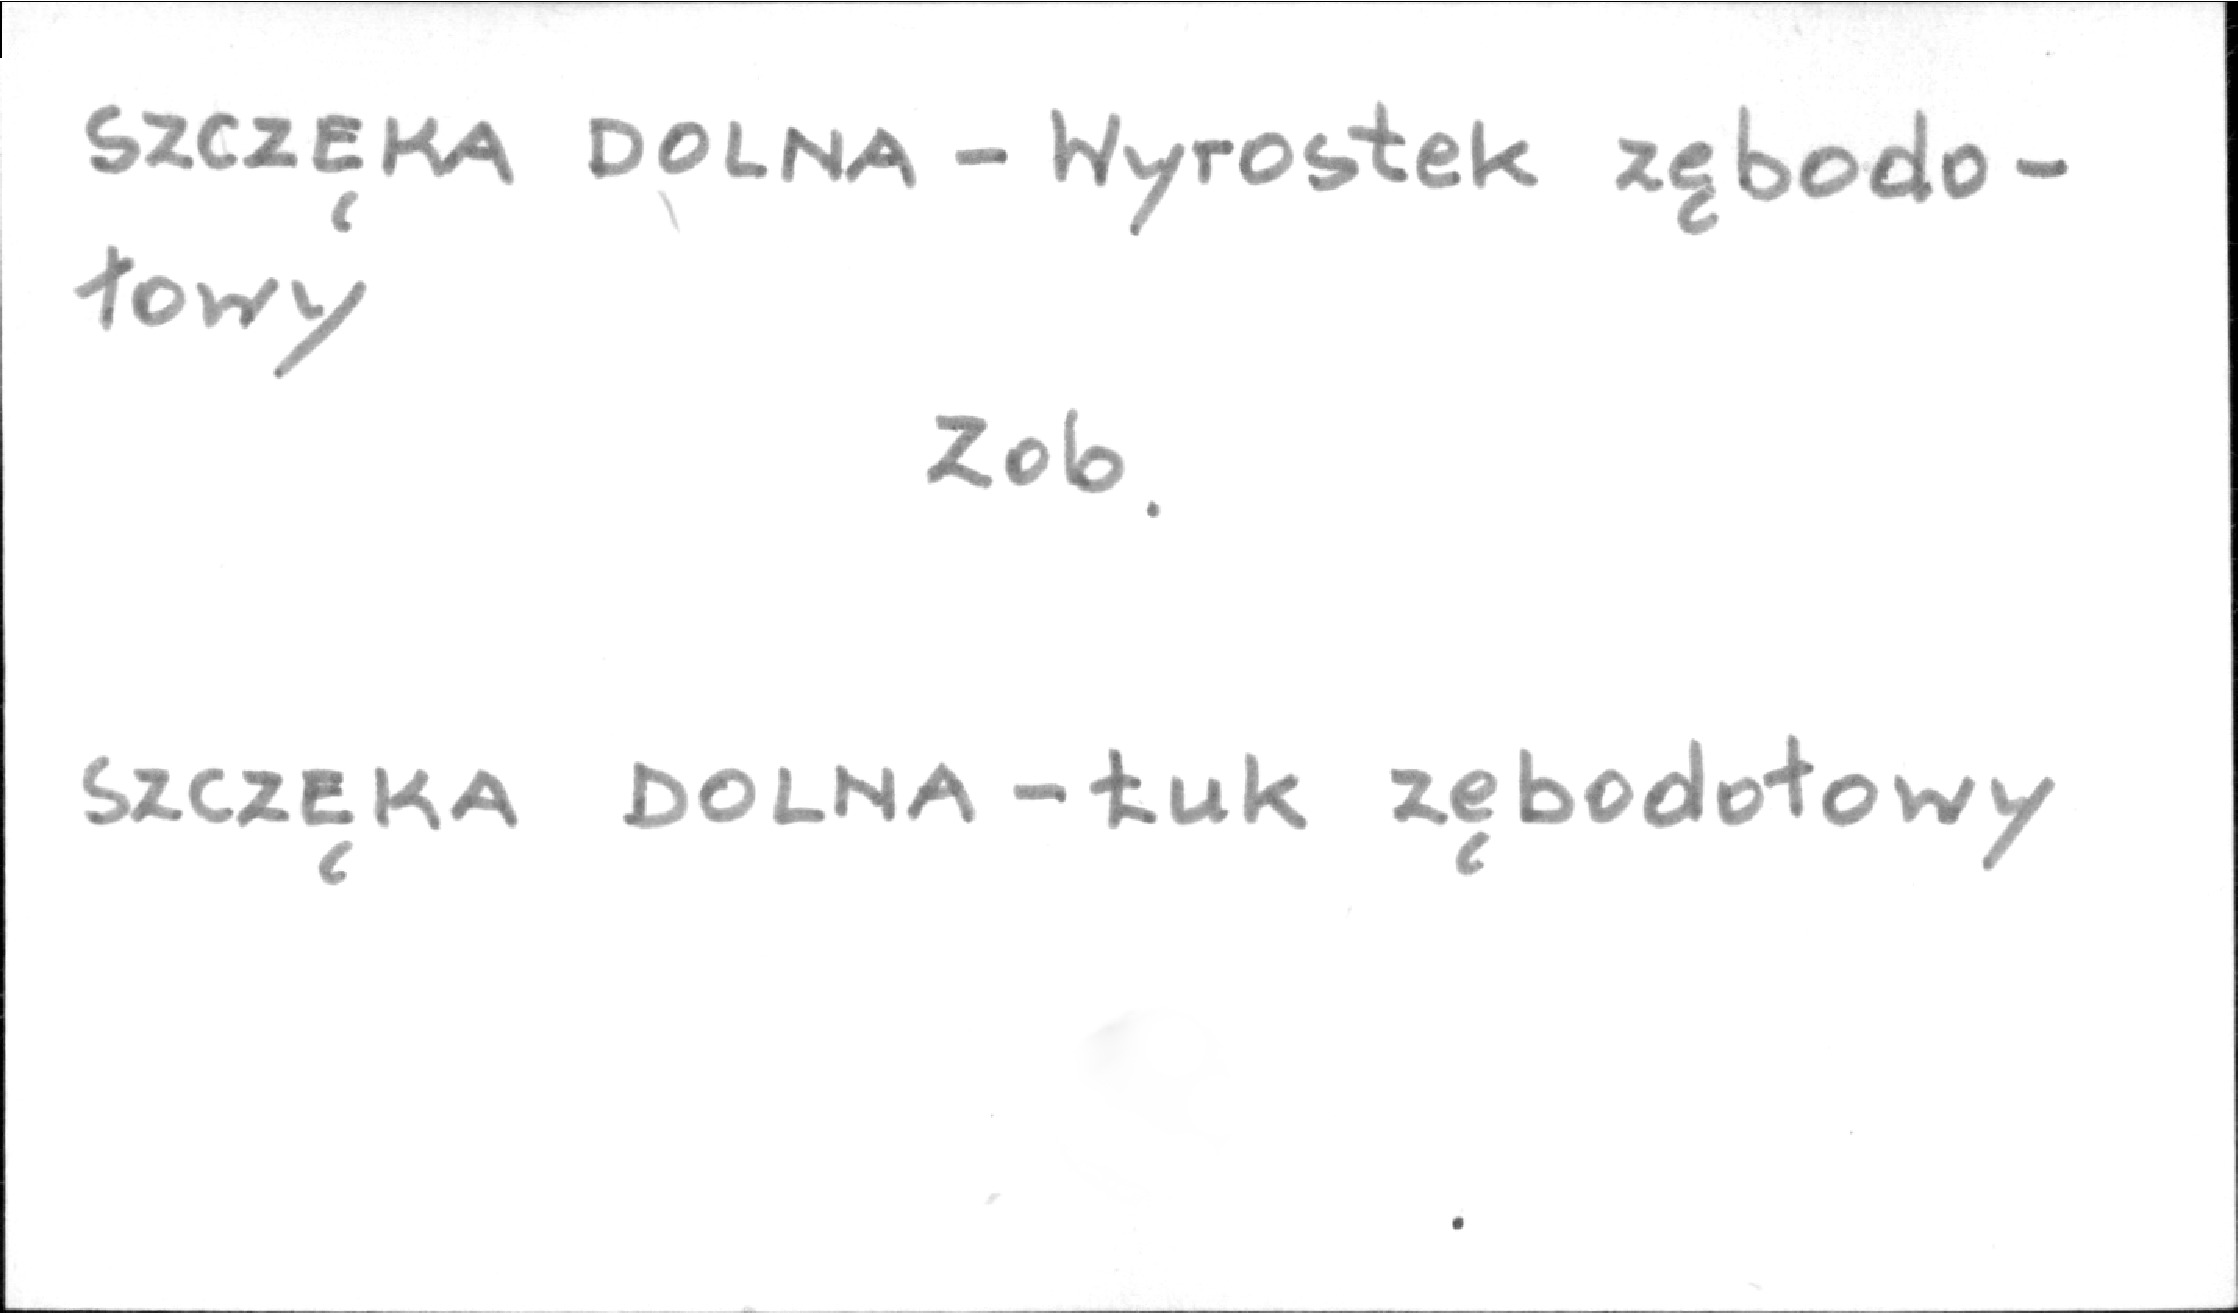 SZCZĘKA DOLNA - Wyrostek zębodo-
łowy
Zob.
SZCZĘKA DOLNA - Łuk zębodołowy